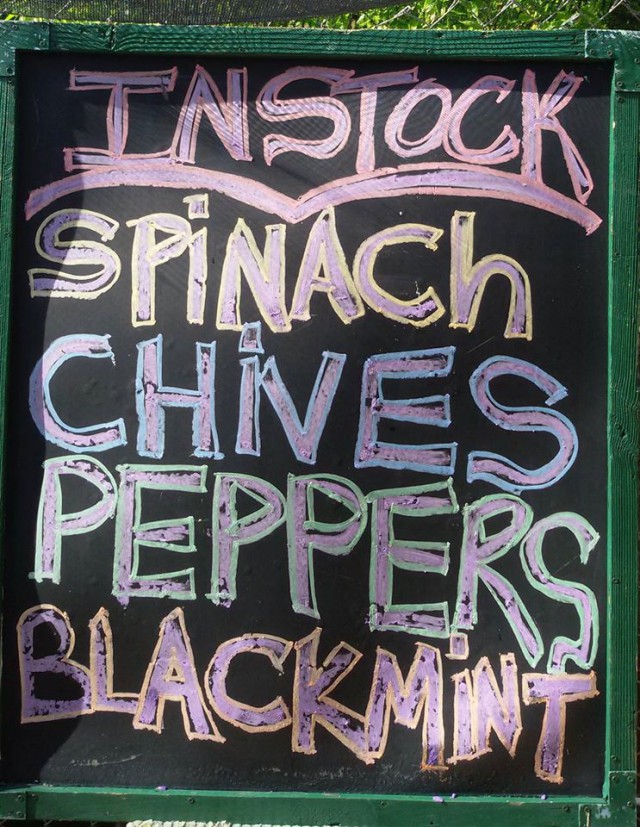 INSTOCK
SPiNACh
CHiVES
PEPPERS
BLACKMiNT